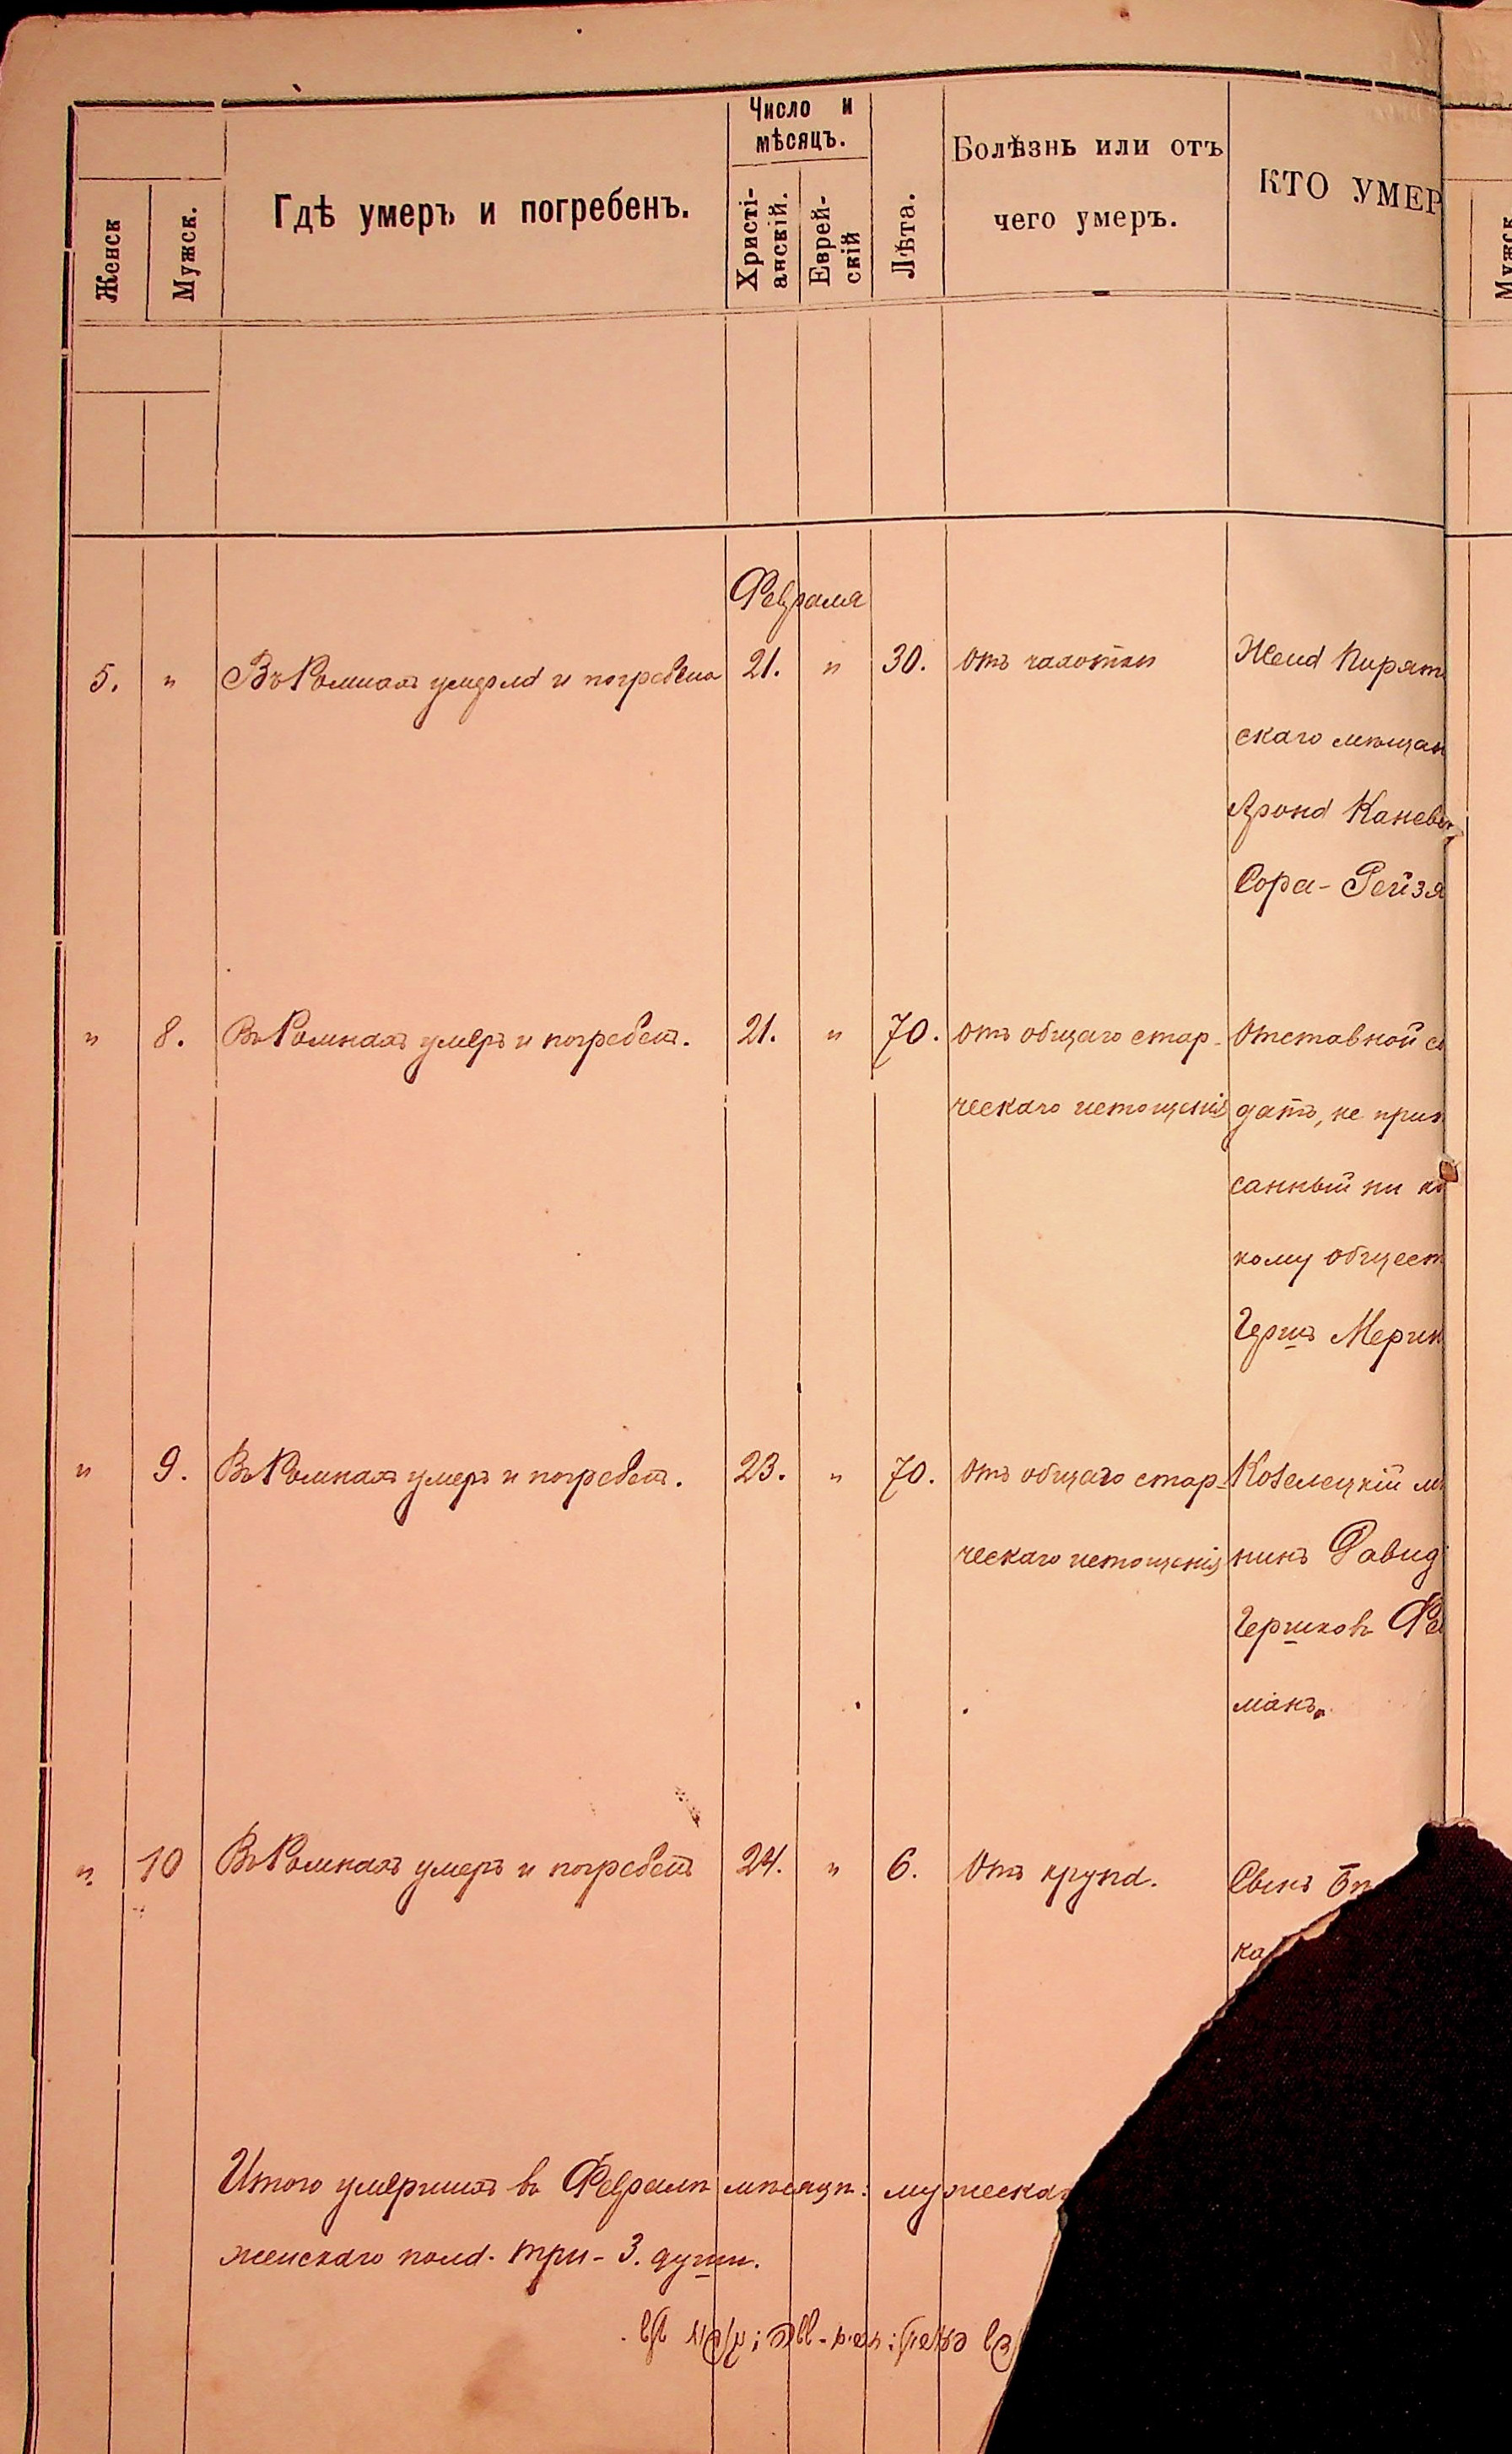 Женск
Мужск.
Гдѣ умеръ и погребенъ.
Число и
мѣсяцъ.
Христі-
анскій.
Еврей-
скій
Лѣта.
Болѣзнь или отъ
чего умеръ.
КТО УМЕР
Мужск
Февраля
5. " Въ Ромнахъ умерла и погребена 21. " 30. отъ чахотки Жена Пирят
скаго мѣщан
Арона Канев
Сора-Рейзя
" 8. Въ Ромнахъ умеръ и погребенъ. 21. " 70. отъ общаго стар- Отставной с
ческаго истощенія датъ, не припи
санный ни къ
кому общест
Гершъ Мерик
" 9. Въ Ромнахъ умеръ и погребенъ. 23. " 70. отъ общаго стар- Козелецкій м
ческаго истощенія нинъ Давид
Гершковъ Фе
манъ.
" 10 Въ Ромнахъ умеръ и погребенъ 24. " 6. Отъ крупа. Сынъ
ка
Итого умершихъ въ Февралѣ мѣсяцѣ: мужеска
женскаго пола. три-3. души.